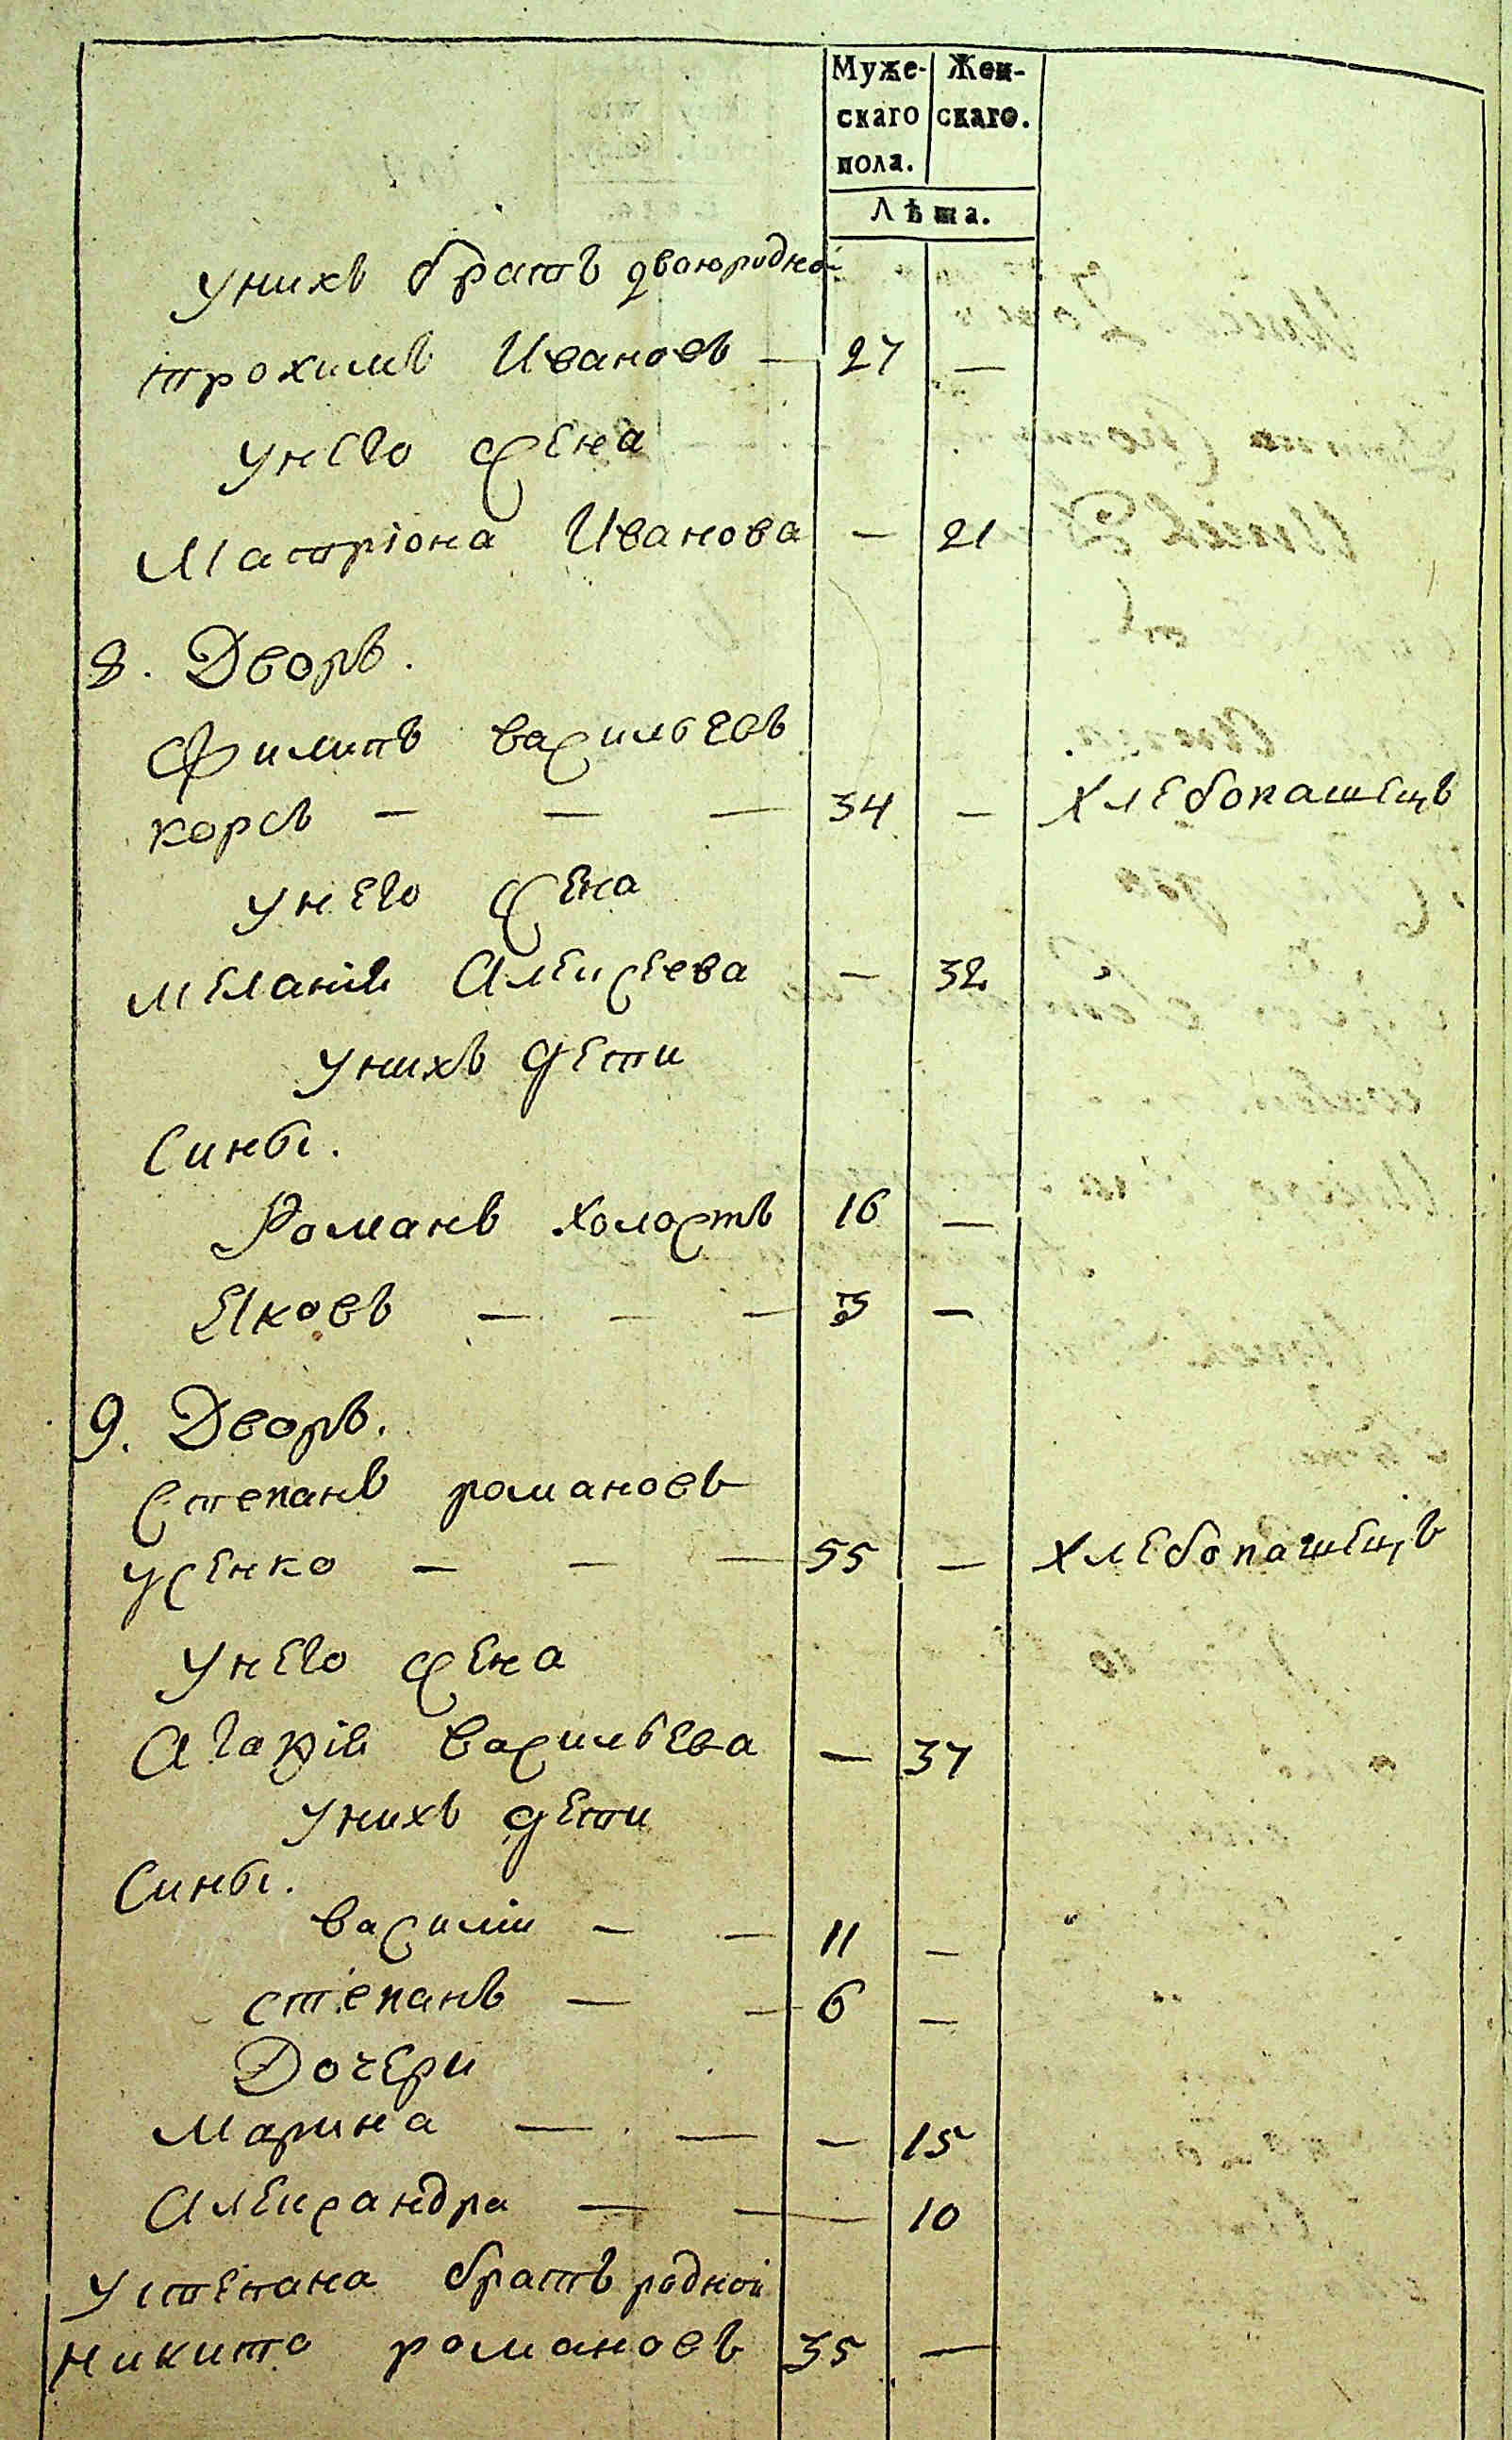 Муже- Жен-
скаго скаго.
пола.
Лѣта.
унихъ братъ двоюродно
трохимъ Ивановъ — 27 —
унего жена
Матріона Иванова — 21
8. Дворъ.
Филипъ васильевъ
корсъ — — — 34 — хлебопашецъ
унего жена
меланія Алексеева — 32
унихъ дети
Сины.
Романъ холостъ 16 —
Яковъ — — —
9. Дворъ.
Степанъ романовъ
усенко — — — 55 — хлебопашецъ
унего жена
Агафія васильева — 37
унихъ дети
Сины.
василіи — — 11 —
степанъ — — 6 —
Дочери
Марина — — — 15
Александра — — — 10
устепана братъ родной
никита романовъ 35 —